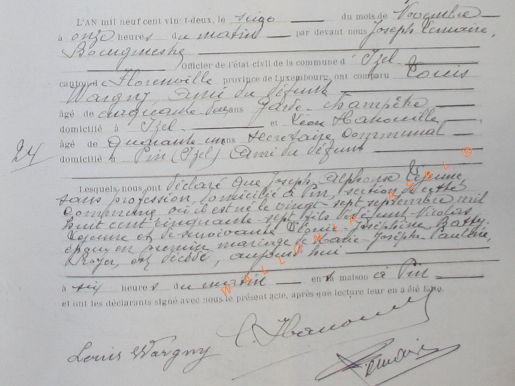 L'AN mil neuf cent vingt-deux, le vingt du mois de Novembre
à onze heures du matin par devant nous Joseph Lemaire,
Bourgmestre
Officier de l'état civil de la commune d' Izel
canton de Florenville province de Luxembourg, ont comparu Louis
Wargny, ami du défunt
âgé de cinquante deux ans Garde-Champêtre
domicilié à Izel et Léon Hanouille
âgé de quarante ans Secrétaire Communal
24
domicilié à Pin (Izel) ami du défunt
Lesquels nous ont déclaré que Joseph Alphonse Lejeune,
sans profession, domicilié à Pin, section de cette
commune où il est né le vingt-sept septembre mil
huit cent cinquante-sept, fils de défunt Nicolas
Lejeune et de survivante Marie-Joséphine
époux en premier mariage de Marie-Josèphe Pauline
est décédé, aujourd'hui
à six heures du matin en sa maison à Pin
et ont les déclarants signé avec nous le présent acte, après que lecture leur en a été faite.
Louis Wargny
L Hanouille
Lemaire